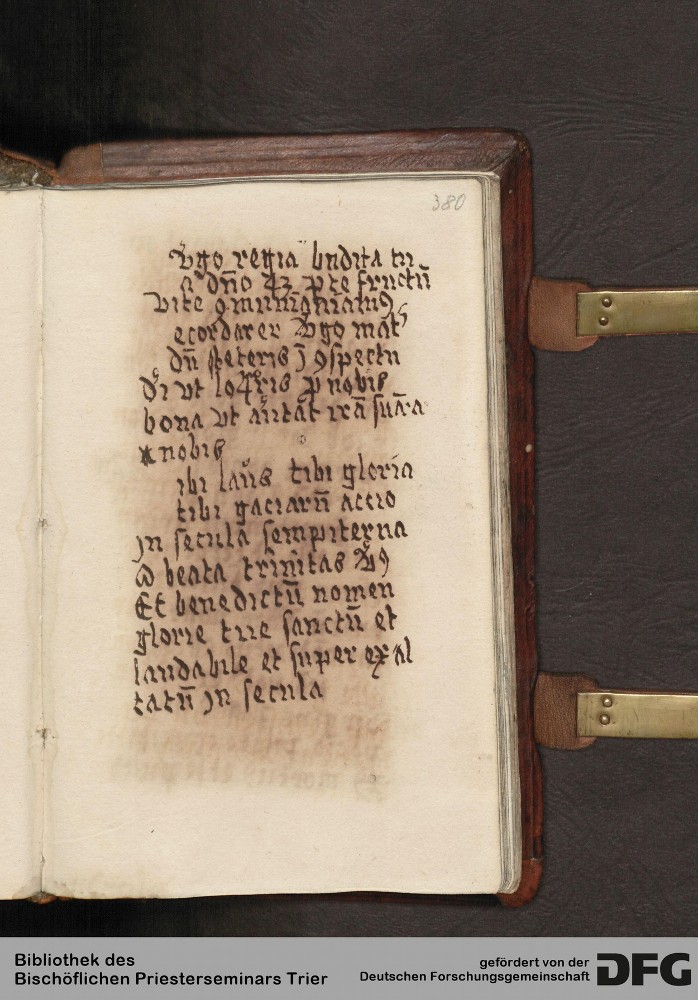 380
v͛go regia b̄ndita tu
a dn̄o qz p te fructū
vite ꝯmunicamꝰ
ecordare v͛go mat͛
dū steteris ī ꝯspectu
di ut loq͛ris p nobis
bona ut au͛tat irā suā
a nobis
ibi laus tibi gloria
tibi gaciarū accio
Jn secula sempiterna
O beata trinitas
Et benedictū nomen
glorie tue sanctū et
laudabile et super exal
tatū Jn secula
Bibliothek des
Bischöflichen Priesterseminars Trier
gefördert von der
Deutschen Forschungsgemeinschaft
DFG